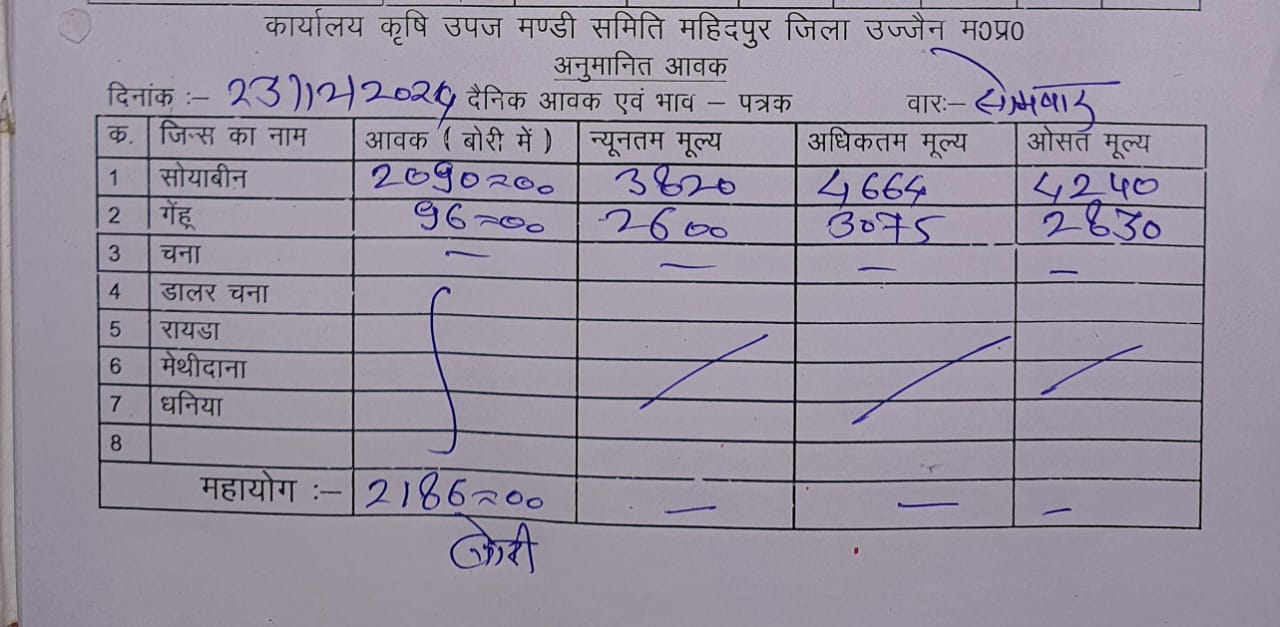 कार्यालय कृषि उपज मण्डी समिति महिदपुर जिला उज्जैन म०प्र०
अनुमानित आवक
दिनांक :– 23/12/2024 दैनिक आवक एवं भाव – पत्रक वारः– सोमवार
क. जिन्स का नाम आवक ( बोरी में ) न्यूनतम मूल्य अधिकतम मूल्य ओसत मूल्य
1 सोयाबीन 2090=00 3820 4664 4240
2 गेंहू 96=00 2600 3075 2830
3 चना — — — —
4 डालर चना
5 रायडा
6 मेथीदाना
7 धनिया
8
महायोग :– 2186=00 — — —
बोरी